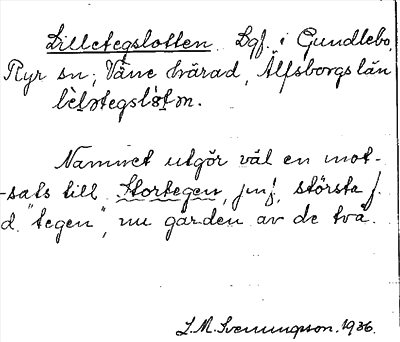 Lilletegslotten Lgf. i Gundlebo,
Ryr sn; Väne härad, Älfsborgs län
lìlətegslòtən.
Namnet utgör väl en mot-
-sats till Stortegen, jmf. största j.
d. "tegen", nu gården av de två.
L.M. Svenungsson. 1936.